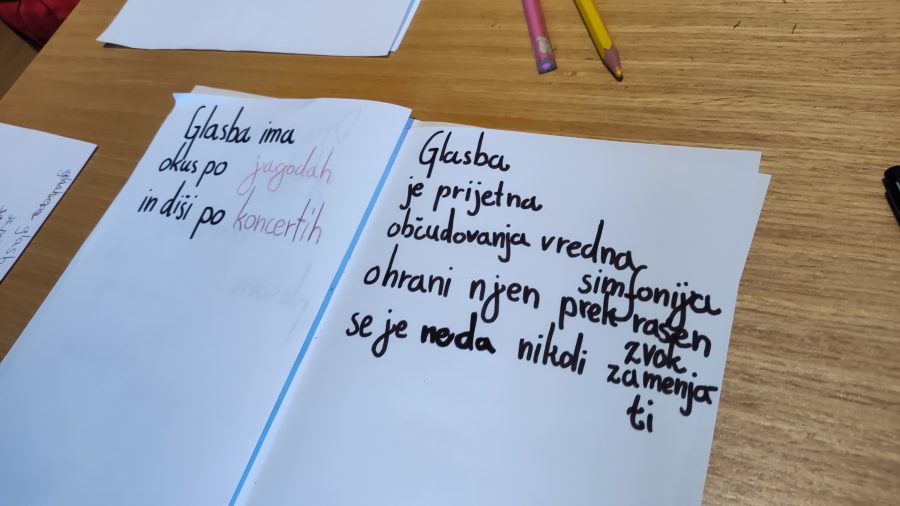 Glasba ima
okus po jagodah
in diši po koncertih
Glasba
je prijetna
občudovanja vredna
simfonija
ohrani njen prekrasen
zvok
se je neda nikdi zamenja
ti